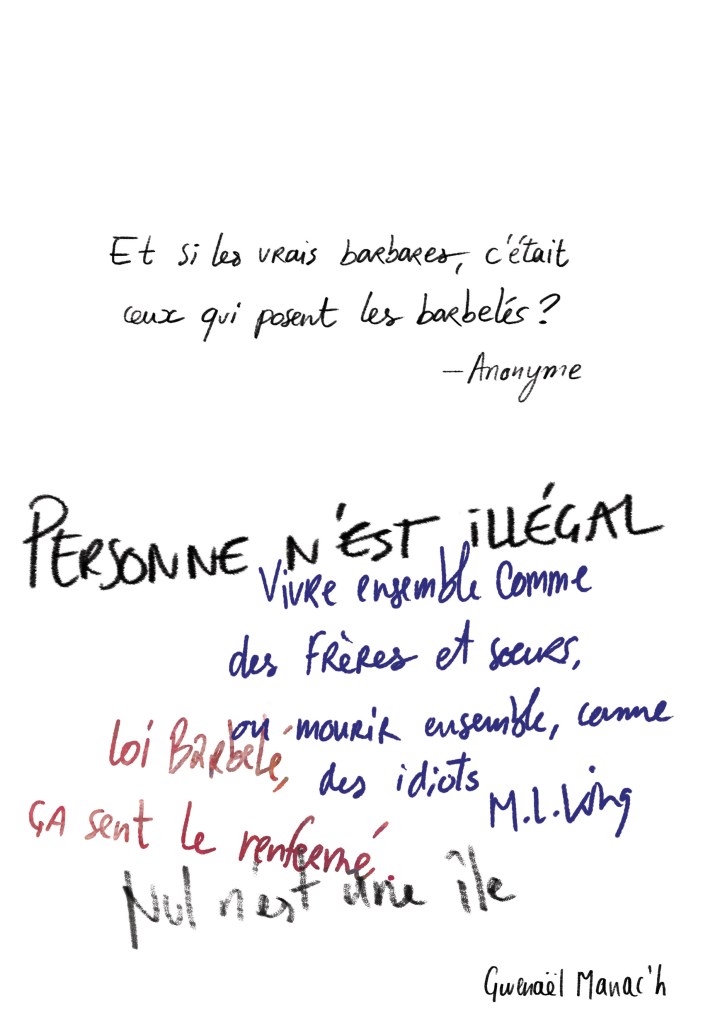 Et si les vrais barbares, c'était
ceux qui posent les barbelés ?
— Anonyme
PERSONNE N'EST ILLÉGAL
Vivre ensemble comme
des frères et sœurs,
ou mourir ensemble, comme
des idiots
M.L.King
Loi Barbelé,
ça sent le renfermé.
Nul n'est une île
Gwenaël Manac'h